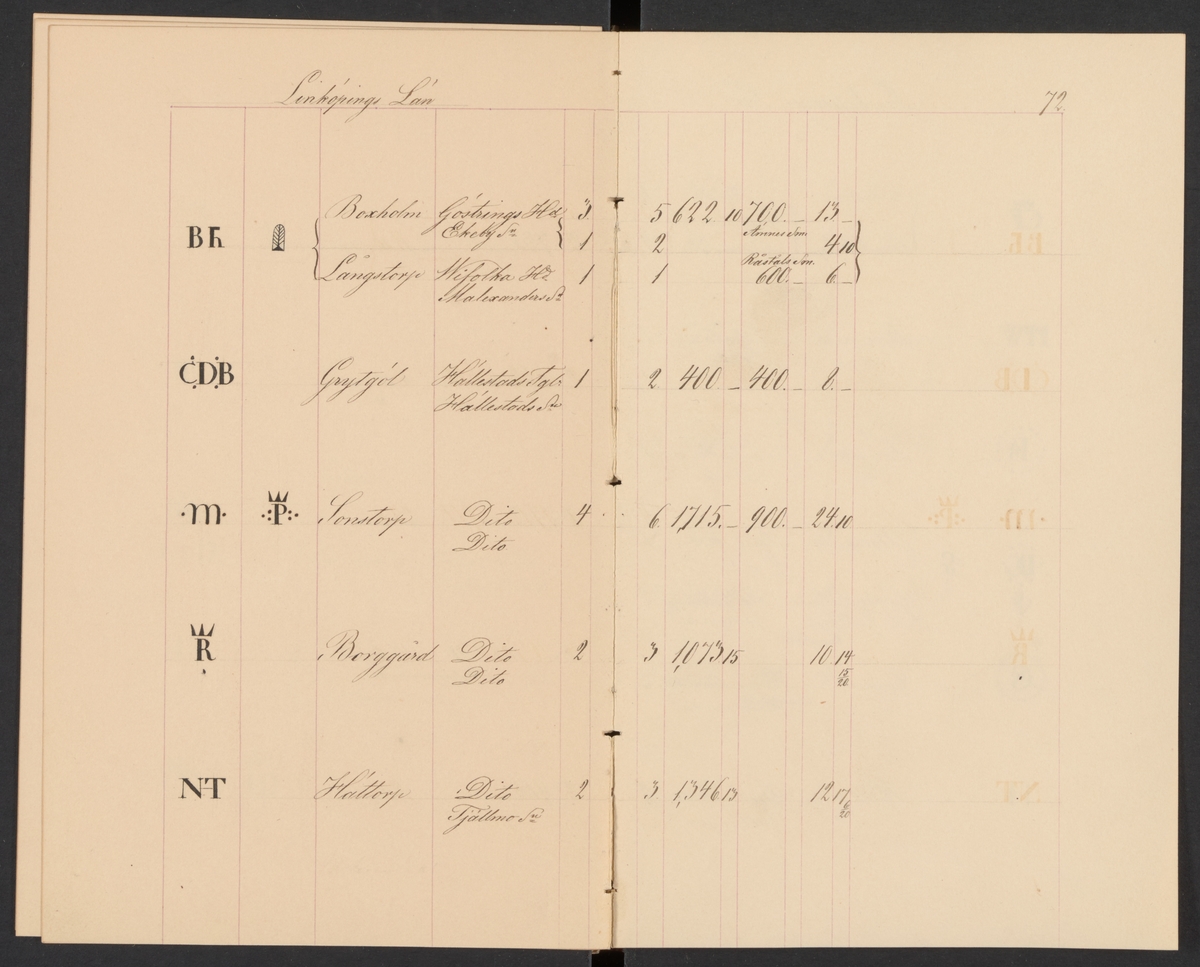 Linköpings Län 72.
Boxholm Göstrings Hd 3 5 622 10 700. — 13 —
BH Ekeby Sn 1 2 Ämnes Sm. 4 10
Långstorp Wifolka Hd 1 1 Råstáls Sm. 600. — 6 —
Malexanders Sn
CDB Grytgöl Hällestads Tgl. 1 2 400 — 400. — 8. —
Hällestads Sn
·M· ·:P:· Sonstorp Dito 4 6 1,715. — 900. — 24. 10
Dito
R Borggård Dito 2 3 1,073 15 10 14 15/20
Dito
NT Hättorp Dito 2 3 1,346 13 12 17 6/20
Tjällmo Sn